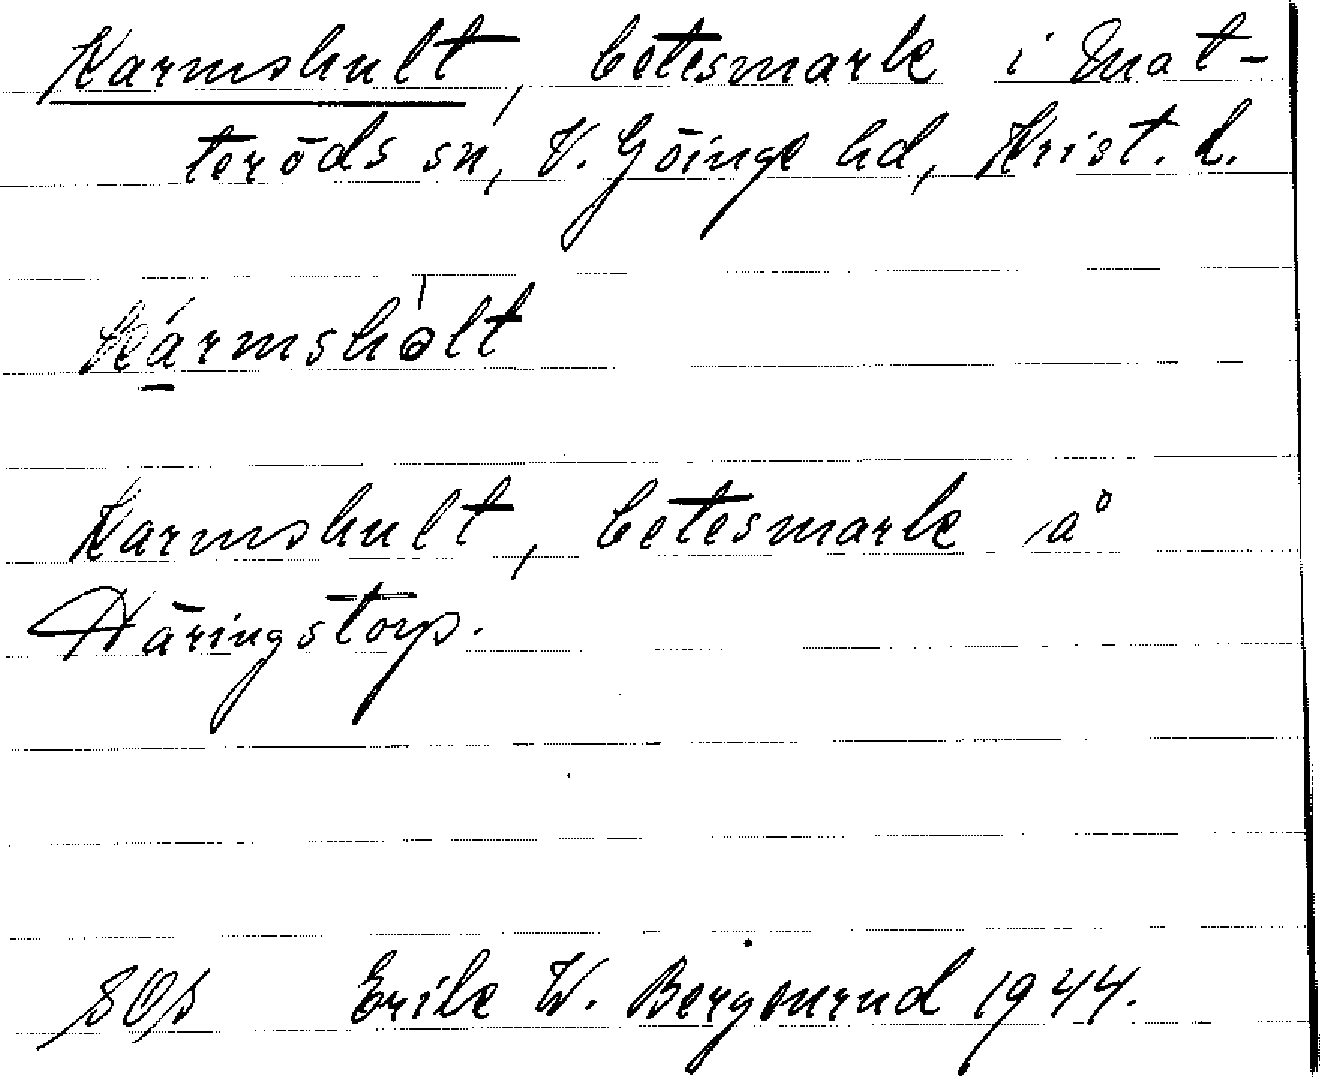 Karmshult, betesmark i Mat-
teröds sn, V. Göinge hd, Krist. l.
Kármshòlt
Karmshult, betesmark å
Häringstorp.
Erik W. Bergmrud 1944.